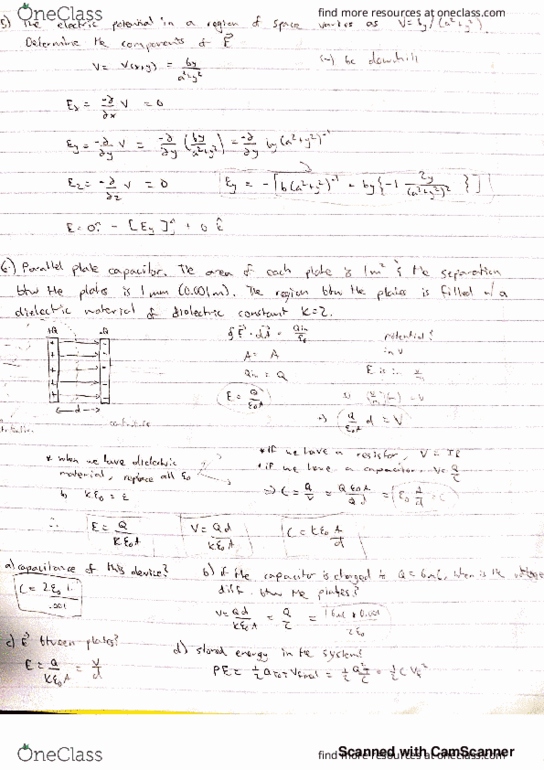 OneClass find more resources at oneclass.com
5) The electric potential in a region of space varies as V = by/(a²+y²).
Determine the components of E⃗
V = V(x,y) = by/(a²+y²)
Ex = -∂/∂x V = 0
Ey = -∂/∂y V = -∂/∂y (by/(a²+y²)) = -∂/∂y by(a²+y²)⁻¹
Ez = -∂/∂z V = 0 Ey = -[b(a²+y²)⁻¹ + by{-1 2y/(a²+y²)²}]
6) Parallel plate capacitor. The area of each plate is 1m² & the separation
btw the plates is 1mm (0.001m). The region btw the plates is filled w/ a
dielectric material of dielectric constant K=2.
+Q -Q ∮E⃗·dA⃗ = Qin/ε₀ potential?
A = A in V
Qin = Q
E = Q/ε₀A
⇒ Q/ε₀A d = V
d
* when we have dielectric
material, replace all ε₀
by Kε₀ = ε
* If we have a resistor, V = IR
* if we have a capacitor V = Q/C
⇒ C = Q/V = Qε₀A/Qd = ε₀A/d = C
∴ E = Q/Kε₀A V = Qd/Kε₀A C = Kε₀A/d
a) capacitance of this device?
C = 2ε₀ 1/.001
b) if the capacitor is charged to Q = 6mC, what is the voltage
diff. btw the plates?
V = Qd/Kε₀A = Q/C =
c) E⃗ between plates?
E = Q/Kε₀A = V/d
d) stored energy in the system?
= ½ Q²/C = ½ C V²
OneClass find more resources at oneclass.com
Scanned with CamScanner